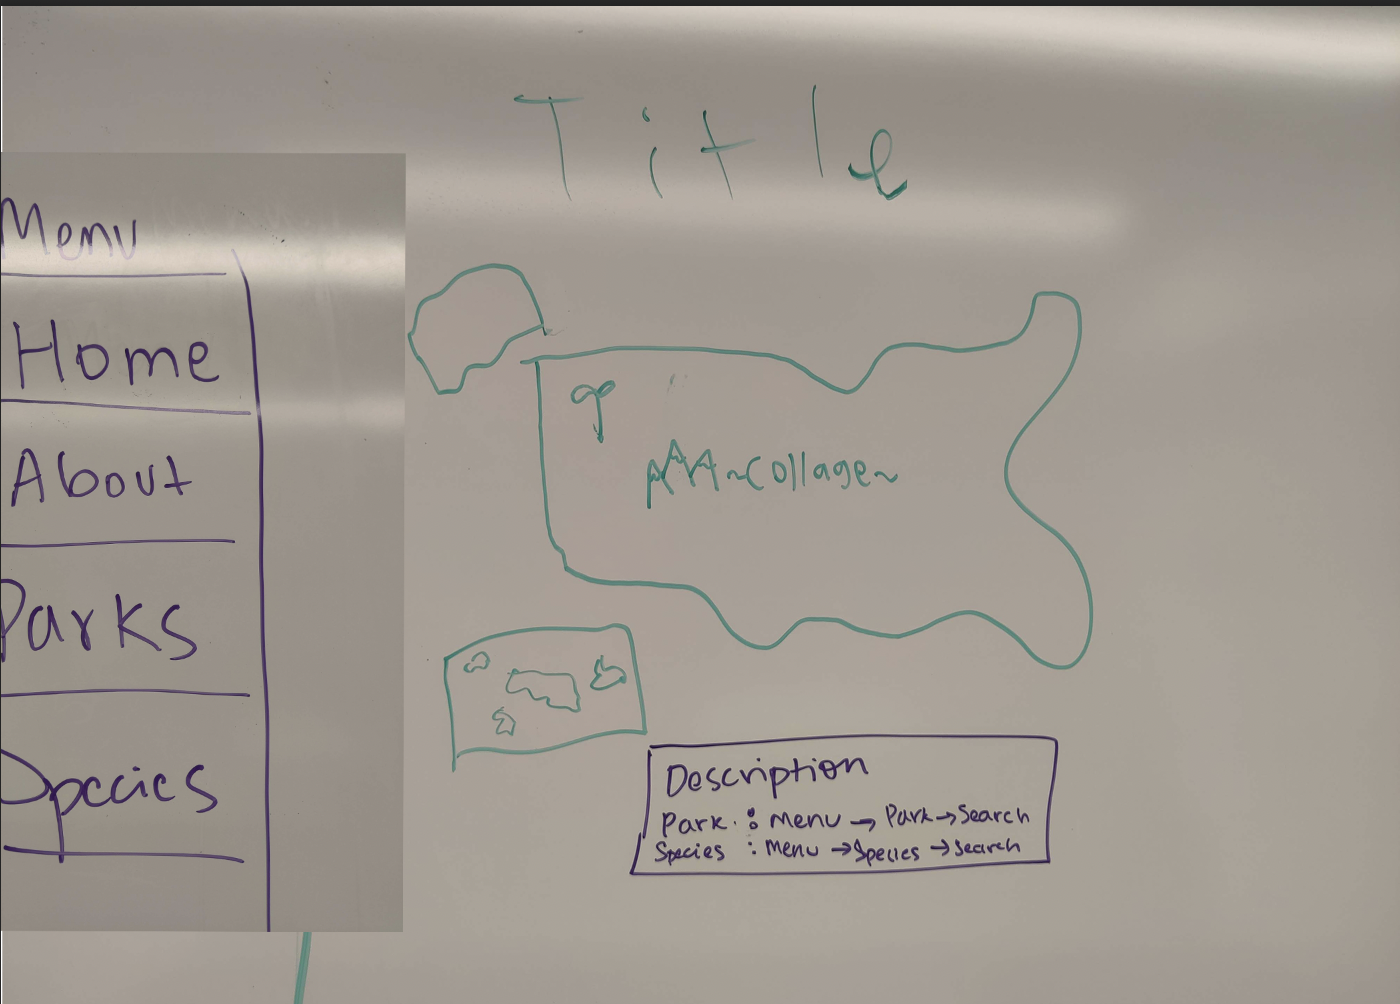 Title
Menu
Home
About
Parks
Species
~Collage~
Description
Park : Menu → Park → Search
Species : Menu → Species → Search